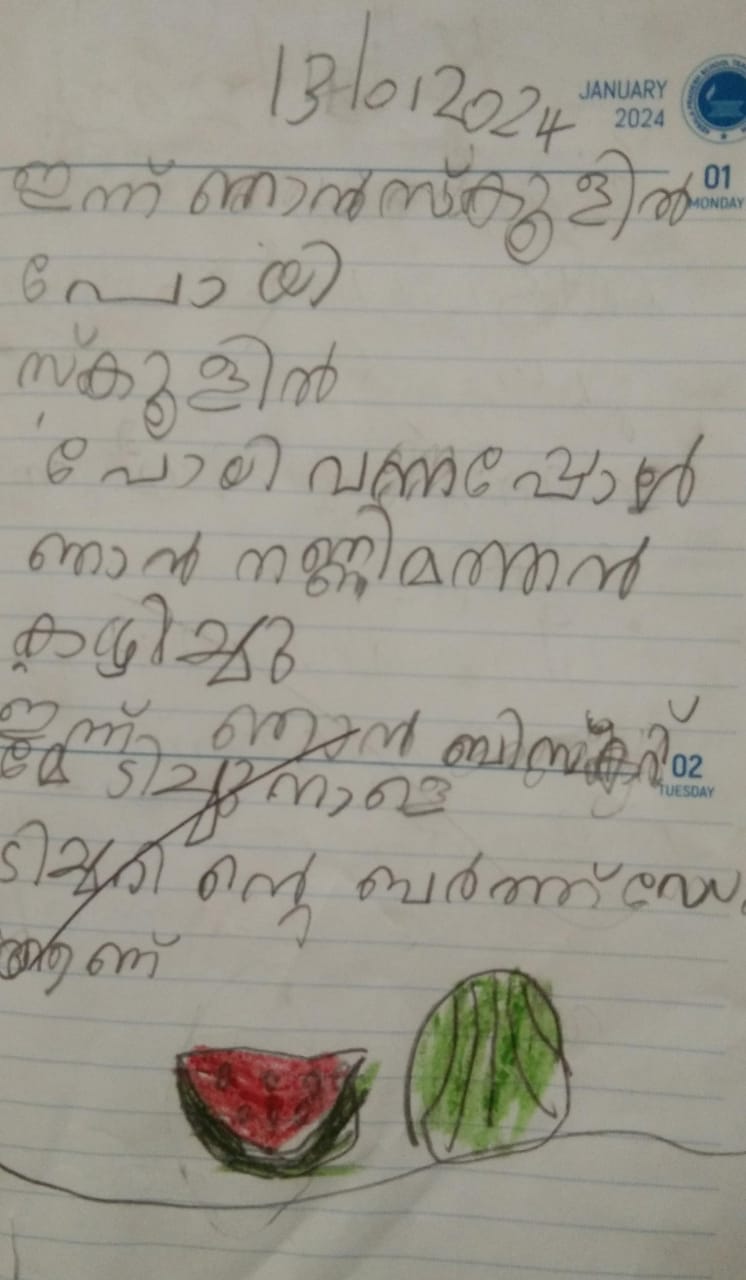 13/01 2024
JANUARY
2024
01
MONDAY
ഇന്ന് ഞാൻ സ്കൂളിൽ
പോയി
സ്കൂളിൽ
പോയി വന്നപ്പോൾ
ഞാൻ തണ്ണിമത്തൻ
കഴിച്ചു
ഇന്ന് ഞാൻ
02
TUESDAY
ടിച്ചറിന്റെ ബർത്ത്
ആണ്